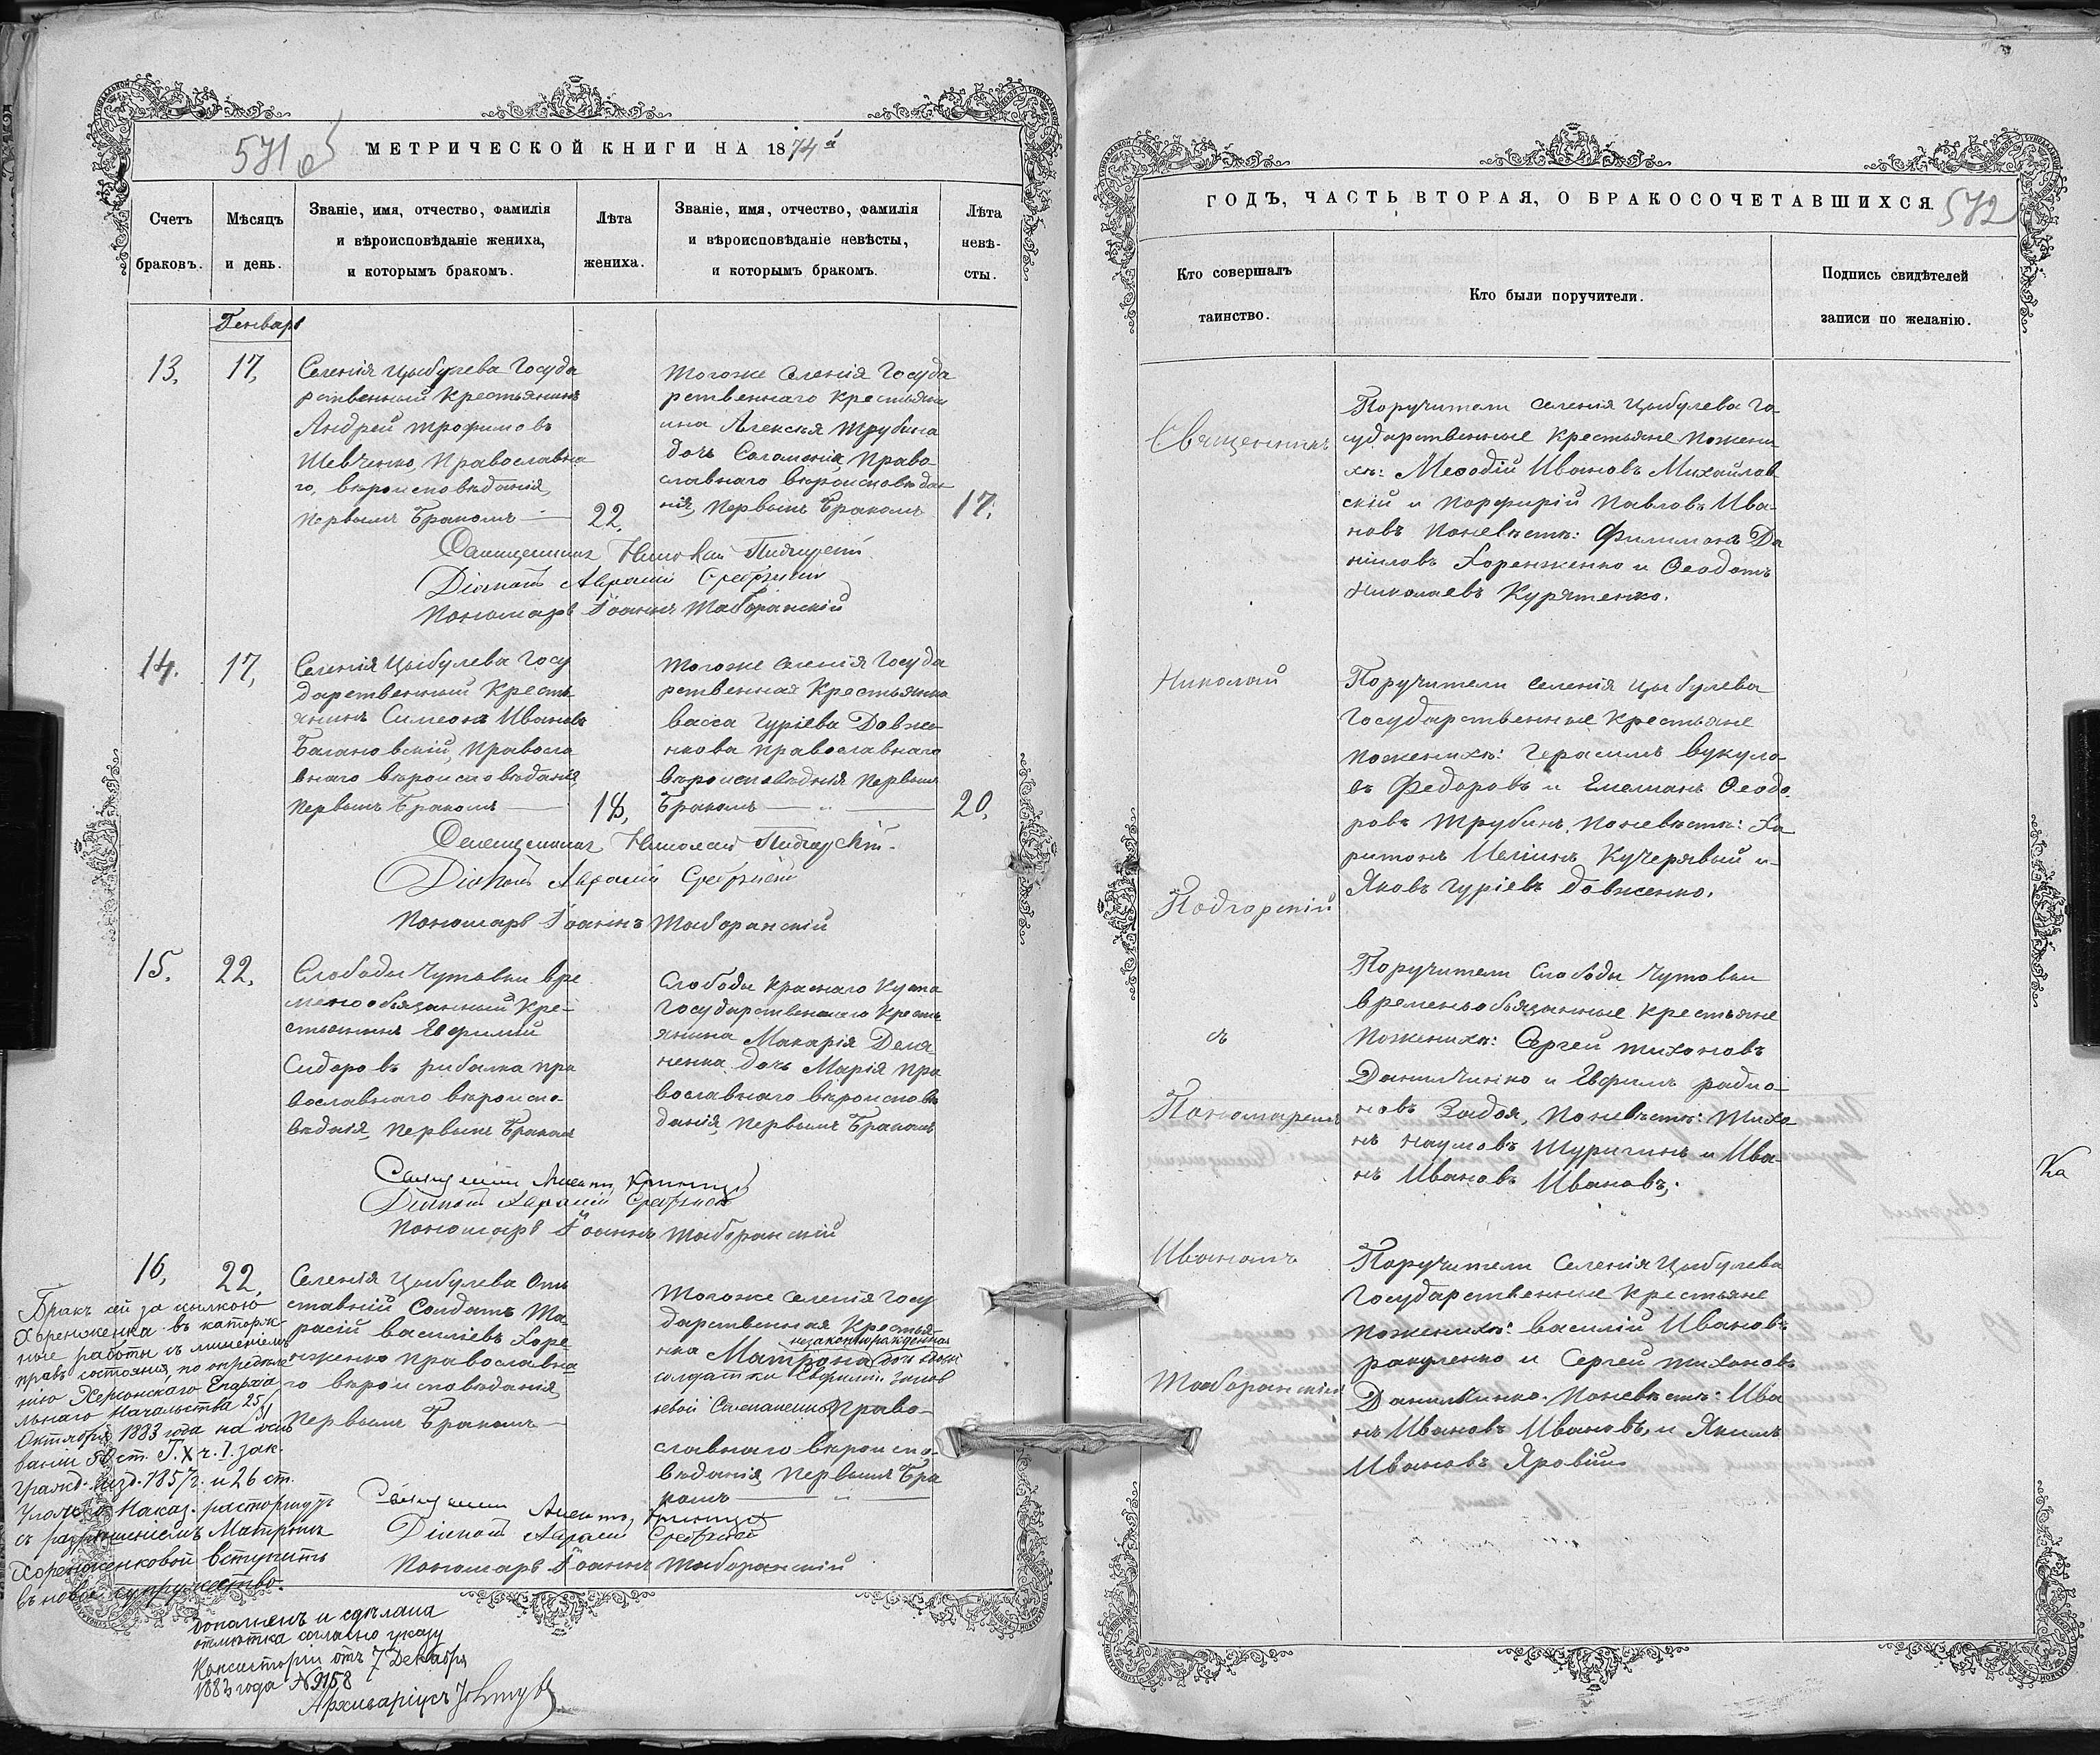 571 об
МЕТРИЧЕСКОЙ КНИГИ НА 1874й
Счетъ браковъ.
Мѣсяцъ и день.
Званіе, имя, отчество, фамилія
и вѣроисповѣданіе жениха,
и которымъ бракомъ.
Лѣта жениха.
Званіе, имя, отчество, фамилія
и вѣроисповѣданіе невѣсты,
и которымъ бракомъ.
Лѣта невѣ-
сты.
Генварь
13.
17,
Селенія Цыбулева Госуда
рственный Крестьянинъ
Андрей Трофимовъ
Шевченко, Православна
го, вѣроисповѣданія,
первымъ бракомъ —
22.
Тогоже Селенія Госуда
рственнаго Крестьяни
ина Алексѣя Трубина
дочь Саломенія, Право-
славнаго вѣроисповѣда
нія, первымъ бракомъ
17.
Священникъ Николай
Діаконъ
Пономарь Іоаннъ Таборанскій
14.
17,
Селенія Цыбулева Госу
дарственный Кресть
янинъ Симеонъ Ивановъ
Багановскій, Правосла
внаго вѣроисповѣданія,
первымъ бракомъ —
18,
Тогоже Селенія Госуда
рственная Крестьянка
Васса Гуріева Довже-
нкова православнаго
вѣроисповѣднія первым
бракомъ — „ —
20,
Священникъ Николай
Діаконъ
Пономарь Іоаннъ Таборанскій
15.
22,
Слободы Чутовки вре
менообязанный Кре-
стьянинъ Евфимій
Сидоровъ рибалка пра
вославнаго вѣроиспо-
вѣднія, первымъ бракомъ
Слободы Краснаго Кута
государственнаго кресть
янина Макарія Деля
ненка дочь Марія пра
вославнаго вѣроисповѣ
данія, первымъ бракомъ
Діаконъ
Пономарь Іоаннъ Таборанскій
16,
22.
Селенія Цыбулева От
ставній Солдатъ Та
расій Василіевъ Хоре
нженко Православна
го вѣроисповѣданія
первымъ бракомъ —
Тогоже Селенія госу
дарственная Крестья-
незаконнорожденная
нка Матрона дочь
солдатки
Право-
славнаго вѣроиспо-
вѣданія, первымъ бра
комъ — „ —
Діаконъ
Пономарь Іоаннъ Таборанскій
Бракъ сей за ссылкою
Хоренженка въ каторж-
ные работы съ лишеніемъ
правъ состоянія, по опредѣле
нію Херсонскаго Епархіа
льнаго Начальства 25/31
Октября 1883 года на осно
ваніи 50 ст. Т. X ч. I. зак.
Гражд. изд. 1857 г. и 26 ст.
Улож. о Наказ. расторгнутъ
съ разрѣшеніемъ Матронѣ
Хоренженковой вступить
въ новое супружество.
Дополненъ и сдѣлана
отмѣтка согласно указу
Консисторіи отъ 7 Декабря
1883 года №9158
Архиваріусъ
ГОДЪ, ЧАСТЬ ВТОРАЯ, О БРАКОСОЧЕТАВШИХСЯ.
572
Кто совершалъ
таинство.
Кто были поручители.
Подпись свидѣтелей
записи по желанію.
Священникъ
Николай
Подгорскій
съ
Пономаремъ
Иваномъ
Таборанскій
Поручители селенія Цыбулева Го-
сударственные Крестьяне Пожени
хѣ: Меѳодій Ивановъ Михайлов
скій и Порфирій Павловъ Ива-
новъ Поневѣстѣ: Филимонъ Да
ніиловъ Хоренженко и Ѳеодотъ
Николаевъ Курятенко.
Поручители селенія Цыбулева
Государственные Крестьяне
поженихѣ: Герасимъ Вукуло-
въ Федоровъ и Емелианъ Ѳеодо-
ровъ Трубинъ, поневѣстѣ: Ха
ритонъ Иелиинъ Кучерявый и
Яковъ Гуріевъ Довженко.
Поручители Слободы Чутовки
временьобязанные крестьяне
Поженихѣ: Сергей Тихоновъ
Данилчинко и Евфимъ радио-
новъ Задоя, Поневѣстѣ: Тихо-
нъ Наумовъ Шуригинъ и Ива-
нъ Ивановъ Ивановъ,.
Поручители Селенія Цыбулева
Государственные Крестьяне
поженихѣ: Василій Ивановъ
ракуленко и Сергей Тихоновъ
Данилчинко. Поневѣстѣ: Ива
нъ Ивановъ Ивановъ, и Якимъ
Ивановъ Яровій
Ка